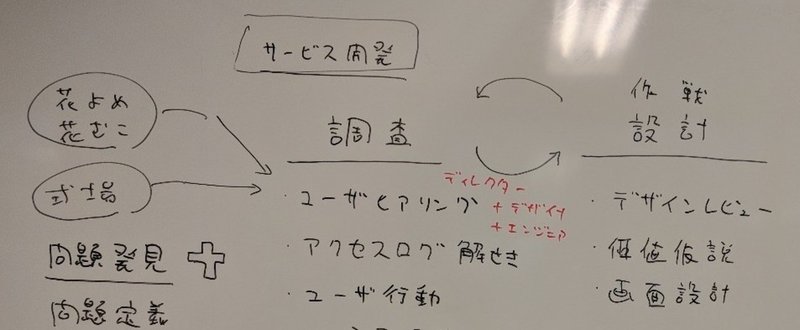 サービス開発
花よめ
花むこ
式場
問題発見
問題定義
調査
・ユーザヒアリング
ディレクター
+デザイナ
+エンジニア
・アクセスログ解せき
・ユーザ行動
作戦
設計
・デザインレビュー
・価値仮説
・画面設計